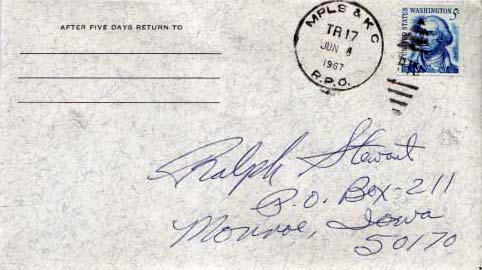 AFTER FIVE DAYS RETURN TO
MPLS & K C
TR 17
JUN 8
1967
R.P.O.
UNITED STATES
WASHINGTON 5
Ralph Stewart
P.O. Box-211
Monroe, Iowa
50170